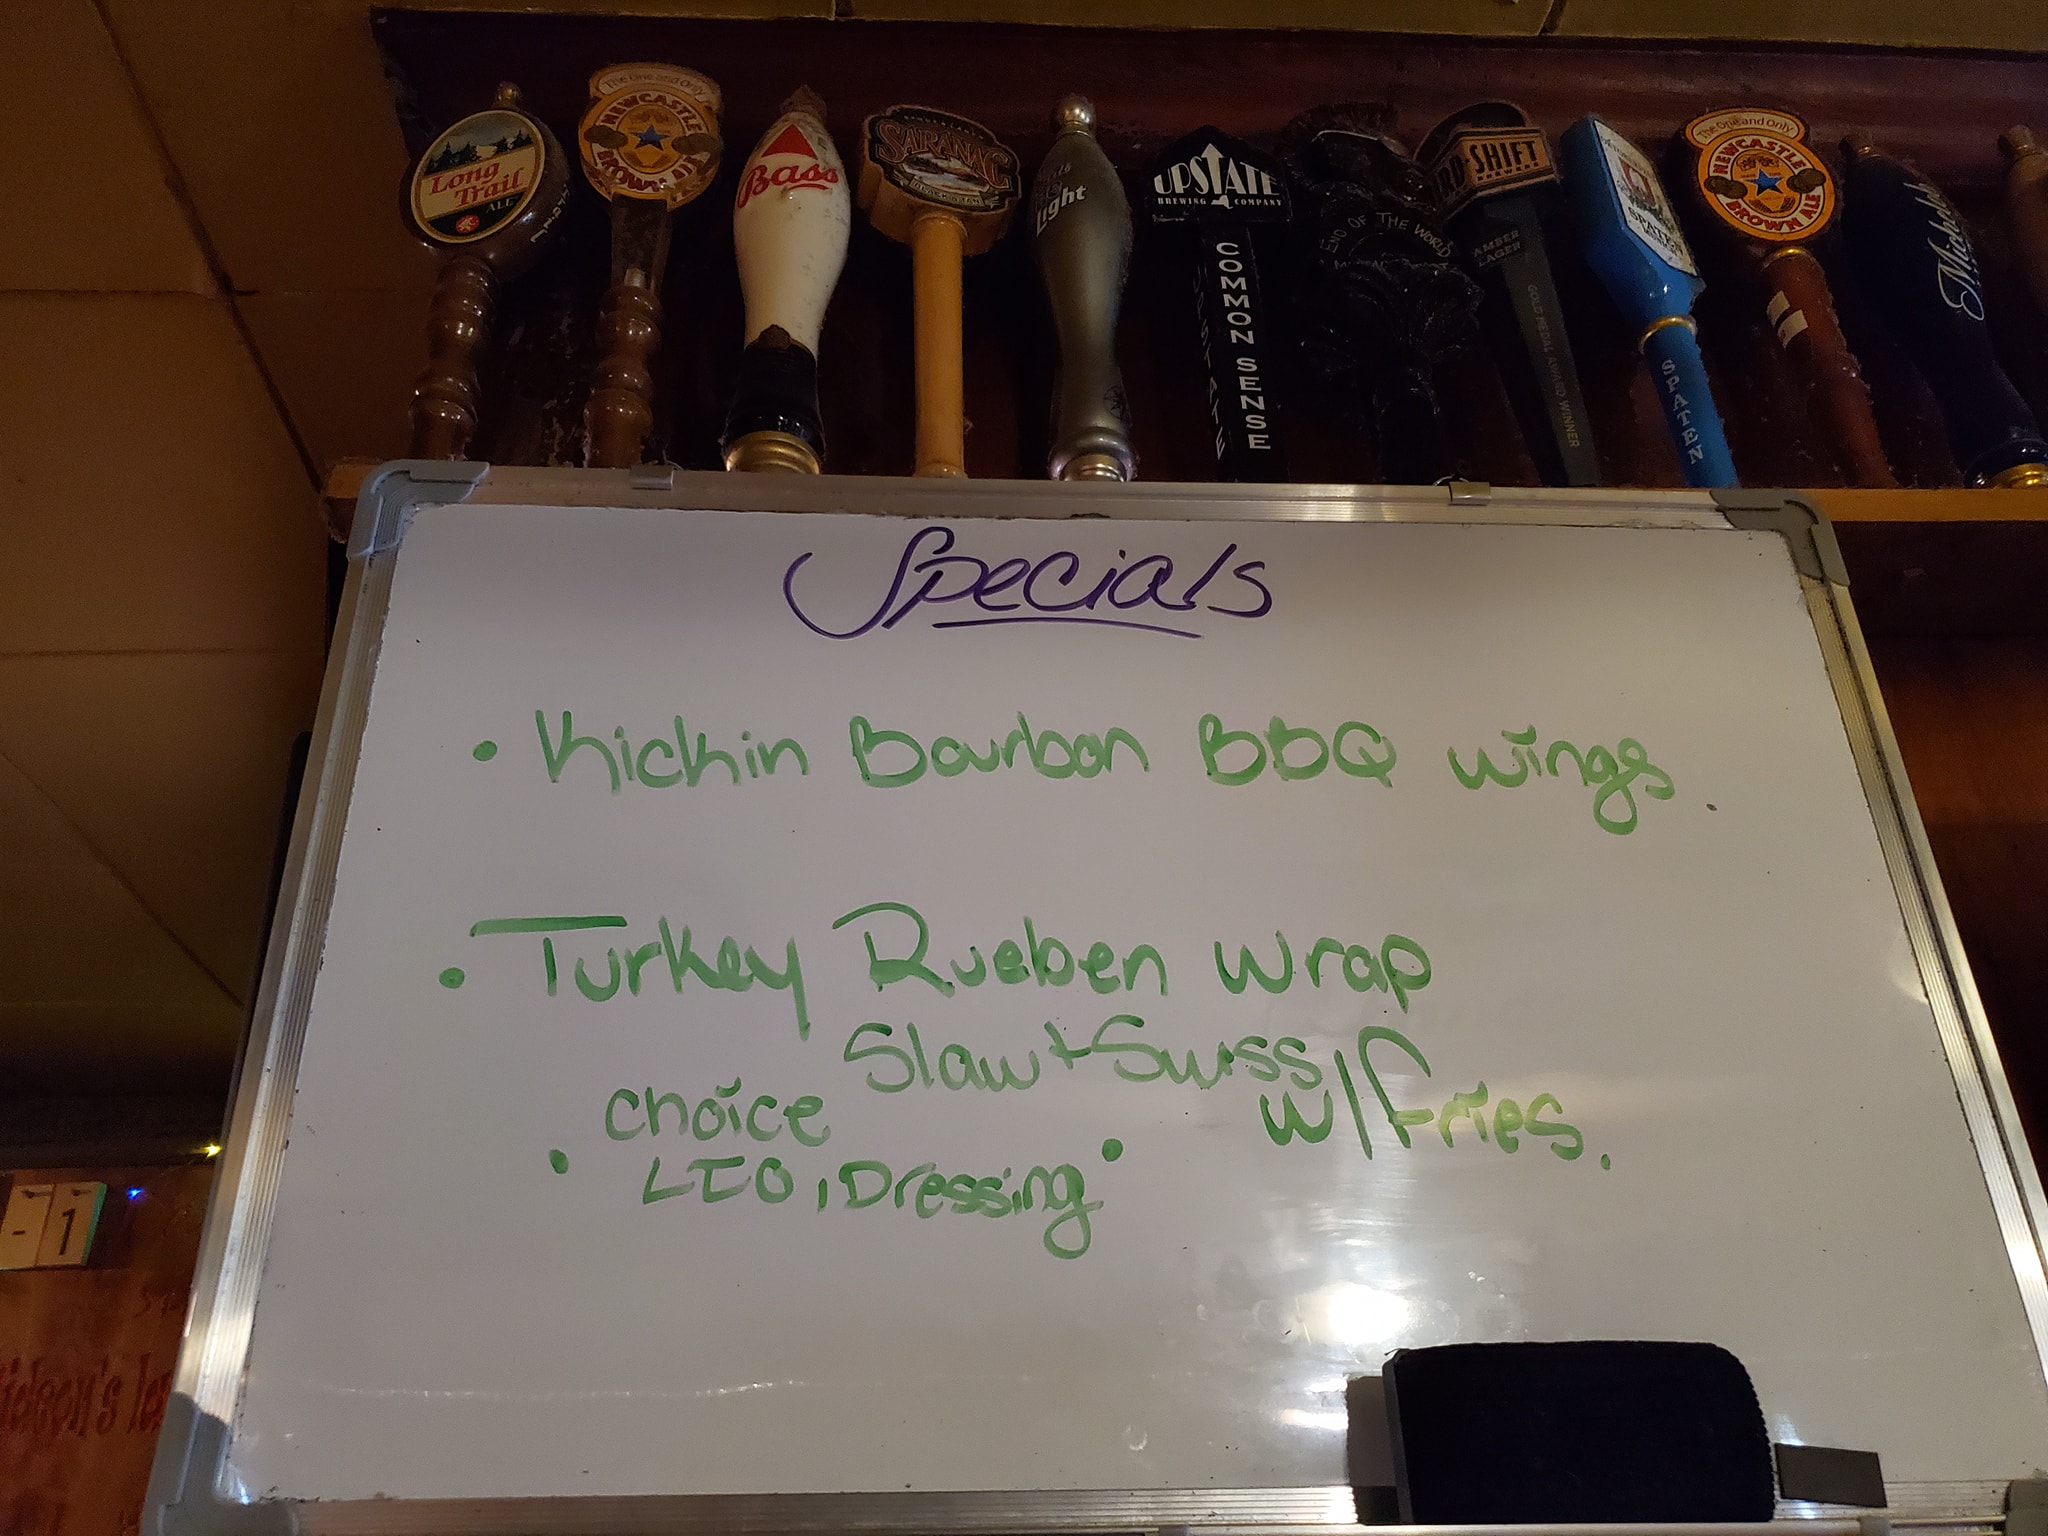 Long
Trail
ALE
The One and Only
NEWCASTLE
BROWN ALE
Bass
SARANAC
BLACK & TAN
Light
UPSTATE
BREWING COMPANY
COMMON SENSE
UPSTATE
END OF THE WORLD
SHIFT
AMBER
LAGER
GOLD MEDAL AWARD WINNER
SPATEN
SPATEN
The One and Only
NEWCASTLE
BROWN ALE
Michelob
Specials
• Kickin Bourbon BBQ wings
• Turkey Rueben wrap
Slaw + Swiss
choice w/fries.
• LTO, Dressing •
- 1